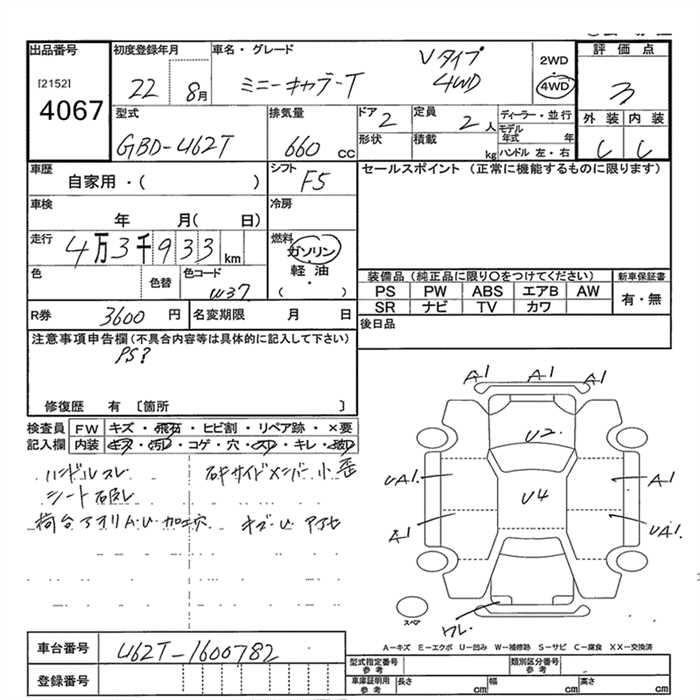 出品番号
[2152]
4067
初度登録年月
22 8月
車名・グレード
ミニーキャブーT
Vタイプ
4WD
2WD
4WD
評価点
3
外装 内装
C C
型式
GBD-U62T
排気量
660 CC
ドア 2
定員 2人
形状
積載 kg
ディーラー・並行
モデル年式 年
ハンドル 左・右
車歴
自家用・( )
シフト F5
セールスポイント (正常に機能するものに限ります)
車検
年 月( 日)
冷房
走行
4万3千933km
燃料
ガソリン
軽・油
・
( )
色
色替
色コード
W37
装備品 (純正品に限り○をつけてください)
新車保証書
PS PW ABS エアB AW
SR ナビ TV カワ
有・無
R券 3600 円
名変期限 月 日
後日品
注意事項申告欄 (不具合内容等は具体的に記入して下さい)
PS?
修復歴 有 [箇所 ]
検査員
記入欄
FW キズ・飛石・ヒビ割・リペア跡・×要
内装 キズ・汚レ・コゲ・穴・スレ・キレ・破レ
ハンドルスレ
シート破レ
荷台アオリA・U 加工穴
右サイドメンバー小歪
キズ・U アセ
A1 A1 A1
U2
U4
UA1.
A1
A1
UA1.
ワレ.
スペア
A-キズ E-エクボ U-凹み W-補修跡 S-サビ C-腐食 XX-交換済
車台番号
U62T-1600782
登録番号
型式指定番号
参考
類別区分番号
参考
車庫証明用
参考
長さ cm
幅 cm
高さ cm